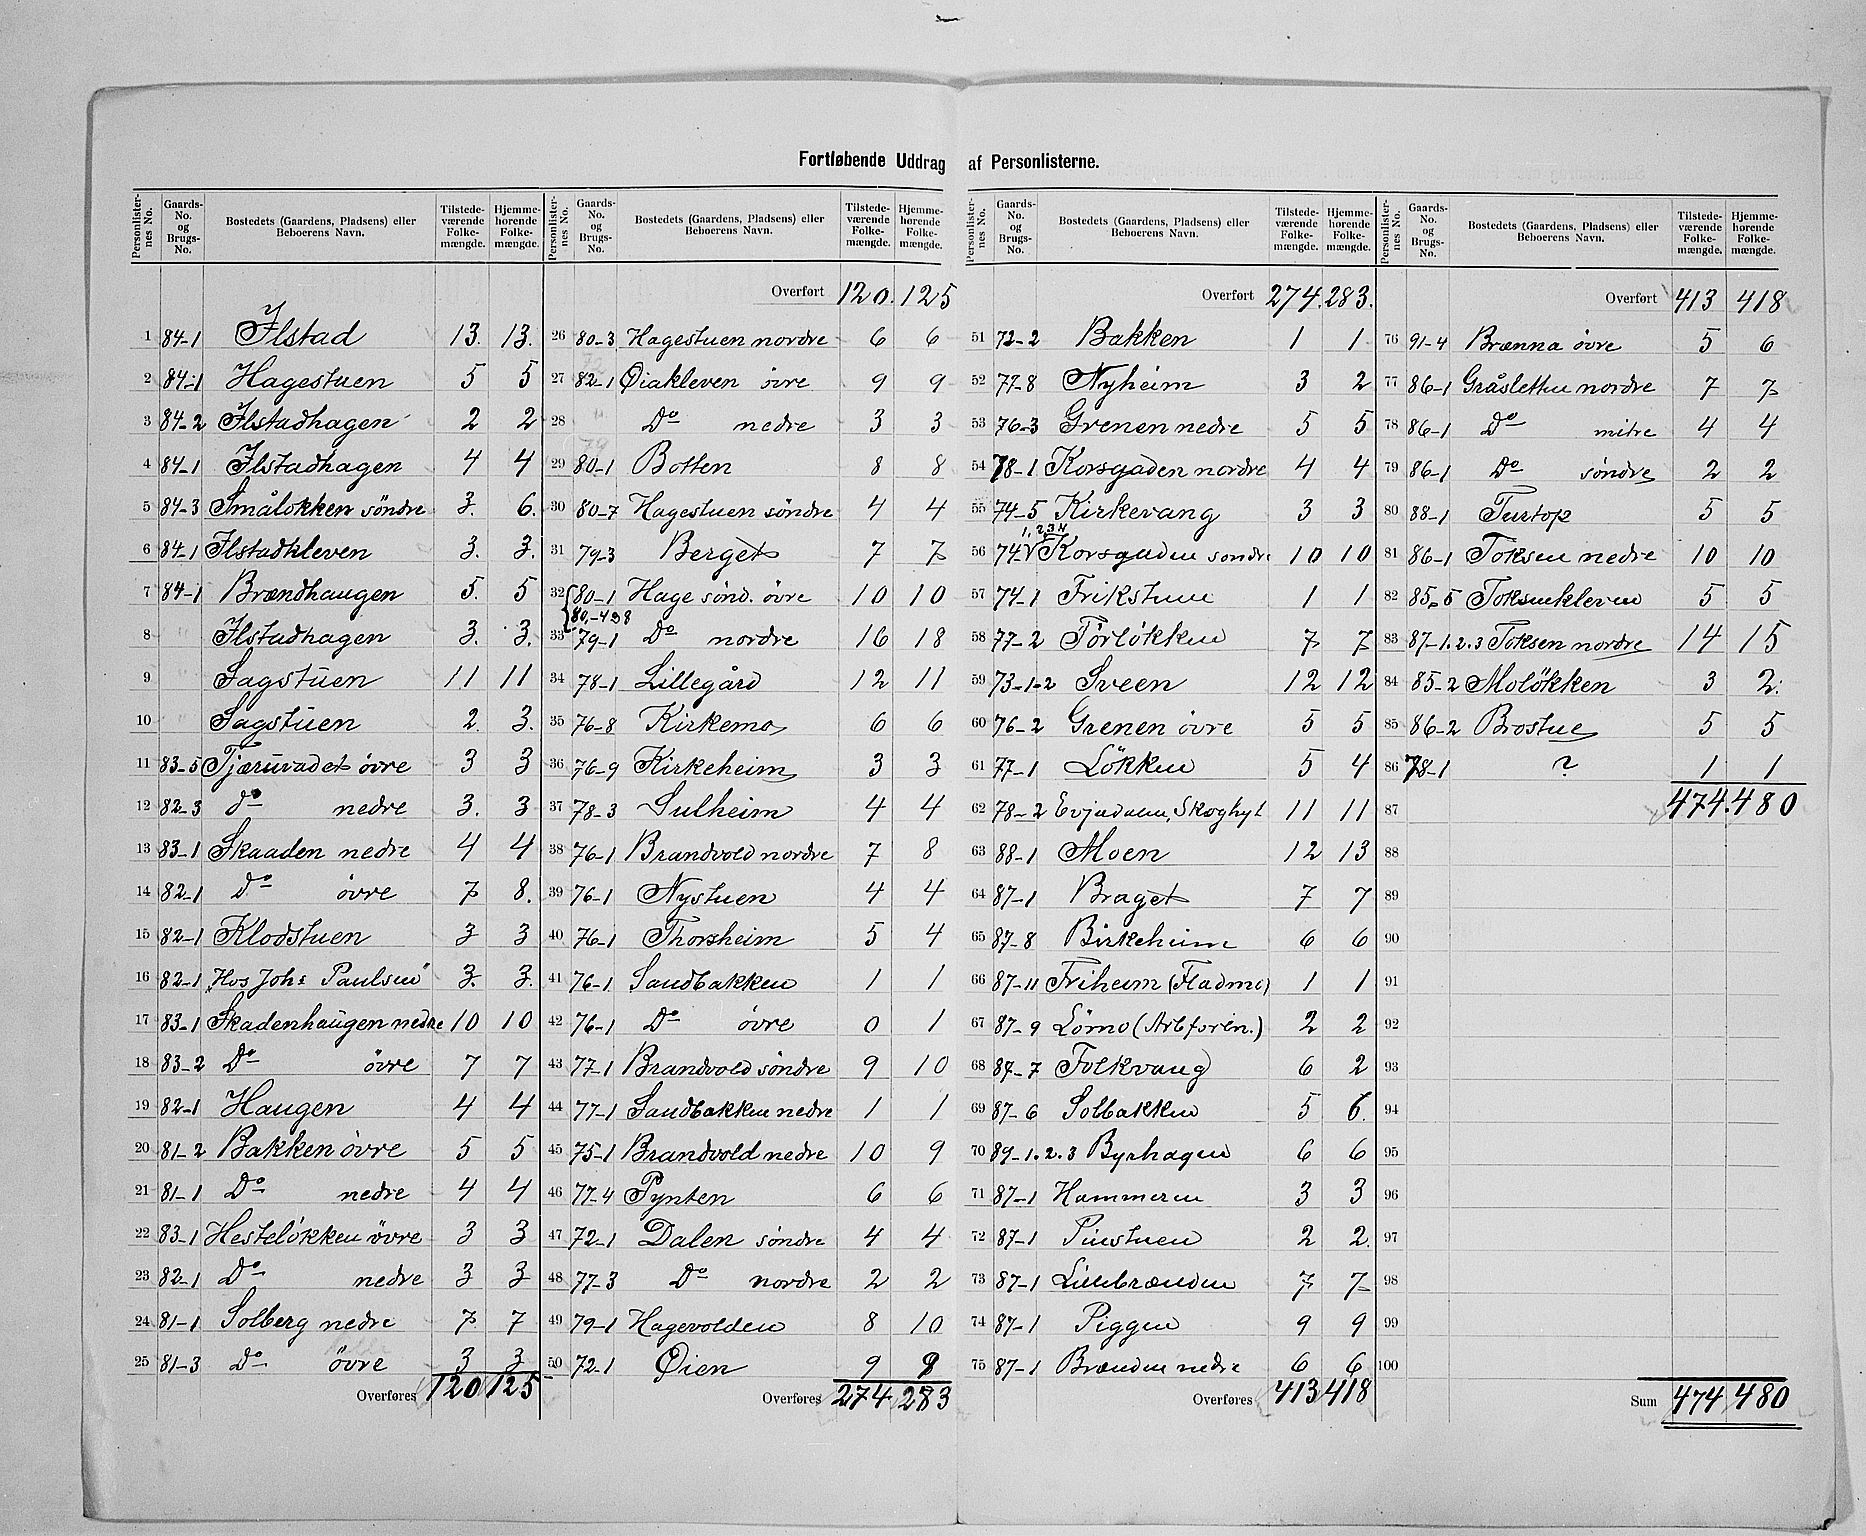 Fortløbende Uddrag af Personlisterne.
Personlister-nes No. | Gaards-No. og Brugs-No. | Bostedets (Gaardens, Pladsens) eller Beboerens Navn. | Tilstede-værende Folke-mængde. | Hjemme-hørende Folke-mængde.
1 84-1 Ilstad 13. 13.
2 84-1 Hagestuen 5 5
3 84-2 Ilstadhagen 2 2
4 84-1 Ilstadhagen 4 4
5 84-3 Småløkken söndre 3. 6.
6 84-1 Ilstadkleven 3. 3.
7 84-1 Brændhaugen 5. 5
8 " Ilstadhagen 3. 3.
9 Sagstuen 11 11
10 " Sagstuen 2. 3.
11 83-5 Tjæruvadet övre 3 3
12 82-3 do nedre 3. 3
13 83-1 Skaaden nedre 4 4
14 82-1 Do övre 7 8.
15 82-1 Klodstuen 3 3
16 82-1 Hos Johs Paulsen 3. 3.
17 83-1 Skadenhaugen nedre 10 10
18 83-2 Do övre 7 7
19 82-1 Haugen 4 4
20 81-2 Bakken övre 5 5
21 81-1 Do nedre 4 4
22 83-1 Hesteløkken övre 3 3
23 82-1 Do nedre 3 3
24 81-1 Solberg nedre 7 7
25 81-3 Do övre 3 3
Overføres 120 125
Personlister-nes No. | Gaards-No. og Brugs-No. | Bostedets (Gaardens, Pladsens) eller Beboerens Navn. | Tilstede-værende Folke-mængde. | Hjemme-hørende Folke-mængde.
Overført 120. 125
26 80-3 Hagestuen nordre 6 6
27 82-1 Øiakleven övre 9 9
28 " Do nedre 3 3
29 80-1 Botten 8 8
30 80-7 Hagestuen söndre 4 4
31 79-3 Berget 7 7
32 80-1 Hage sönd. övre 10 10
80-4 og 8
33 79-1 Do nordre 16 18
34 78-1 Lillegård 12 11
35 76-8 Kirkemo 6 6
36 76-9 Kirkeheim 3 3
37 78-3 Sulheim 4 4
38 76-1 Brandvold nordre 7 8
39 76-1 Nystuen 4 4
40 76-1 Thorsheim 5 4
41 76-1 Sandbakken 1 1
42 76-1 Do övre 0 1
43 77-1 Brandvold söndre 9 10
44 77-1 Sandbakken nedre 1 1
45 75-1 Brandvold nedre 10 9
46 77-4 Pynten 6 6
47 72-1 Dalen söndre 4 4
48 77-3 Do nordre 2 2
49 79-1 Hagevolden 8 10
50 72-1 Øien 9 9
Overføres 274 283
Personlister-nes No. | Gaards-No. og Brugs-No. | Bostedets (Gaardens, Pladsens) eller Beboerens Navn. | Tilstede-værende Folke-mængde. | Hjemme-hørende Folke-mængde.
Overført 274. 283.
51 72-2 Bakken 1 1
52 77-8 Nyheim 3 2
53 76-3 Grenen nedre 5 5
54 78-1 Korsgaden nordre 4 4
55 74-5 Kirkevang 3 3
1, 2, 3, 4
56 74 Korsgaden søndre 10 10
57 74-1 Frikstuen 1 1
58 77-2 Törløkken 7 7
59 73-1-2 Sveen 12 12
60 76-2 Grenen övre 5 5
61 77-1 Løkken 5 4
62 78-2 Evjudaen, Skoghyt 11 11
63 88-1 Moen 12 13
64 87-1 Braget 7 7
65 87-8 Birkeheim 6 6
66 87-11 Friheim (Fladmo) 1 1
67 87-9 Lömo (Arbforen.) 2 2
68 87-7 Folkvang 6 2
69 87-6 Solbakken 5 6.
70 89-1.2.3 Byrhagen 6 6
71 87-1 Hammeren 3 3
72 87-1 Pinstuen 2 2.
73 87-1 Lillebrænden 7 7
74 87-1 Piggen 9 9
75 87-1 Brænden nedre 6 6
Overføres 413 418
Personlister-nes No. | Gaards-No. og Brugs-No. | Bostedets (Gaardens, Pladsens) eller Beboerens Navn. | Tilstede-værende Folke-mængde. | Hjemme-hørende Folke-mængde.
Overført 413 418
76 91-4 Brænna övre 5 6
77 86-1 Gråsletten nordre 7 7
78 86-1 Do mitre 4 4
79 86-1 Do söndre 2 2
80 88-1 Turtop 5 5
81 86-1 Toksen nedre 10 10
82 85-5 Toksenkleven 5 5
83 87-1.2.3 Toksen nordre 14 15
84 85-2 Moløkken 3 2.
85 86-2 Brostue 5 5
86 78-1 ? 1 1
87 474. 480
88
89
90
91
92
93
94
95
96
97
98
99
100
Sum 474 480